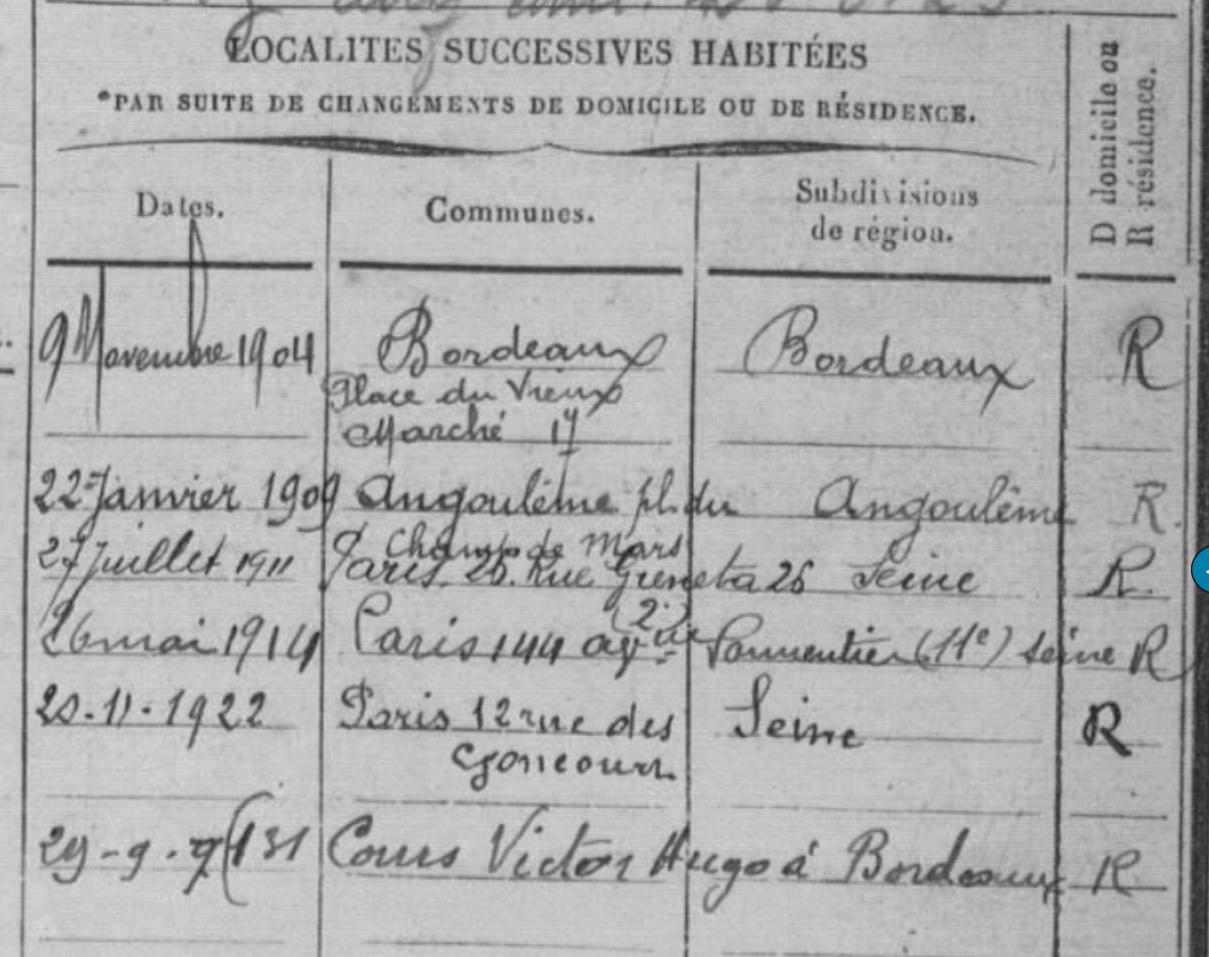 LOCALITES SUCCESSIVES HABITÉES
PAR SUITE DE CHANGEMENTS DE DOMICILE OU DE RÉSIDENCE.
D domicile ou
R résidence.
Dates.
Communes.
Subdivisions
de région.
9 Novembre 1904 Bordeaux Bordeaux R
Place du Vieux
Marché 17
22 Janvier 1909 Angoulême pl. du Angoulême R.
Champ de Mars
27 Juillet 1911 Paris 26. Rue Greneta 26 Seine R.
(2e)
26 mai 1914 Paris 144 avue Parmentier (11e) seine R
20-11-1922 Paris 12 rue des Seine R
Goncourt
29-9- 131 Cours Victor Hugo à Bordeaux R